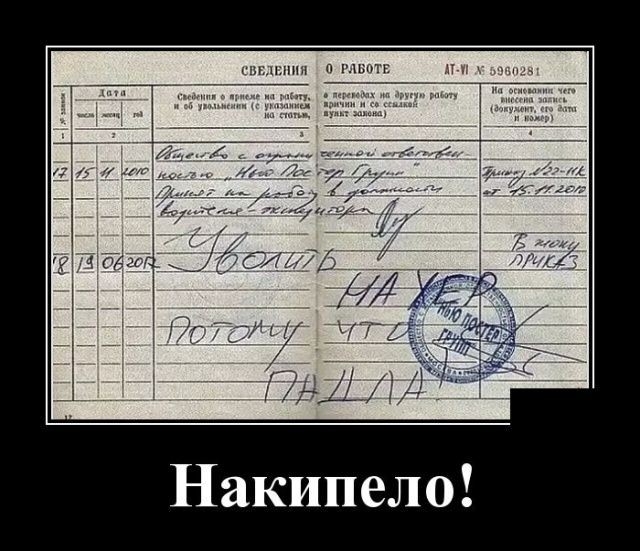 СВЕДЕНИЯ О РАБОТЕ АТ-VI № 5960281
№ записи
Дата
число месяц год
Сведения о приеме на работу, о переводах на другую работу
и об увольнении (с указанием причин и со ссылкой
на статью, пункт закона)
На основании чего
внесена запись
(документ, его дата
и номер)
1 2 3 4
Общество с ограниченной ответствен-
17 15 11 2010 ностью "Нью Постер Групп" Приказ №22-НК
Принят на работу в должности от 15.11.2010
водителя-экспедитора
18 19 06 2012 УВОЛИТЬ В жопу ПРИКАЗ
НА ХЕР
ПОТОМУ ЧТО
ПАДЛА
НЬЮ ПОСТЕР
ГРУПП
МОСКВА
Накипело!